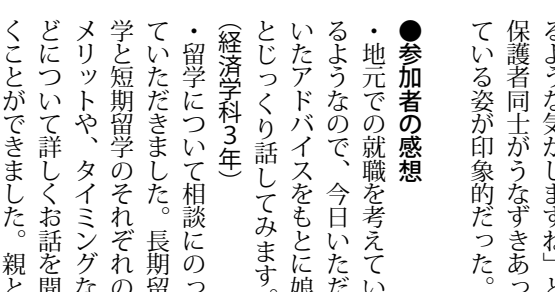 るような気がしますね」と
保護者同士がうなずきあっ
ている姿が印象的だった。
●参加者の感想
・地元での就職を考えてい
るようなので、今日いただ
いたアドバイスをもとに娘
とじっくり話してみます。
（経済学科3年）
・留学について相談にのっ
ていただきました。長期留
学と短期留学のそれぞれの
メリットや、タイミングな
どについて詳しくお話を聞
くことができました。親と